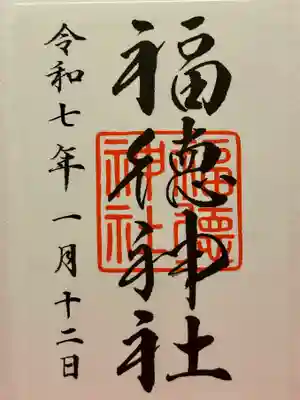 福徳神社
福德神社
令和七年一月十二日